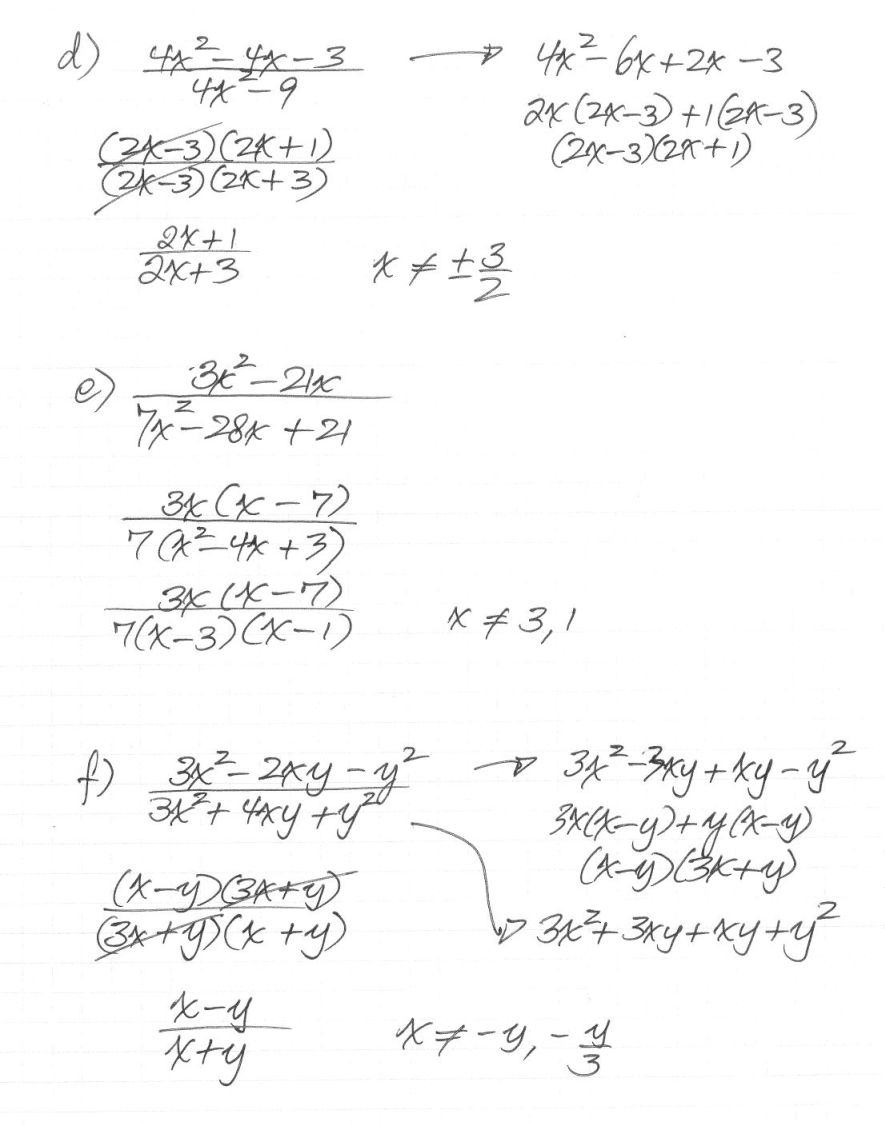 d) (4x² - 4x - 3)/(4x² - 9) → 4x² - 6x + 2x - 3
2x(2x-3) + 1(2x-3)
(2x-3)(2x+1)
(2x-3)(2x+1)/(2x-3)(2x+3)
(2x+1)/(2x+3) x ≠ ± 3/2
e) (3x² - 21x)/(7x² - 28x + 21)
3x(x - 7)/7(x² - 4x + 3)
3x(x-7)/7(x-3)(x-1) x ≠ 3, 1
f) (3x² - 2xy - y²)/(3x² + 4xy + y²) → 3x² - 3xy + xy - y²
3x(x-y) + y(x-y)
(x-y)(3x+y)
(x-y)(3x+y)/(3x+y)(x+y) → 3x² + 3xy + xy + y²
(x-y)/(x+y) x ≠ -y, -y/3